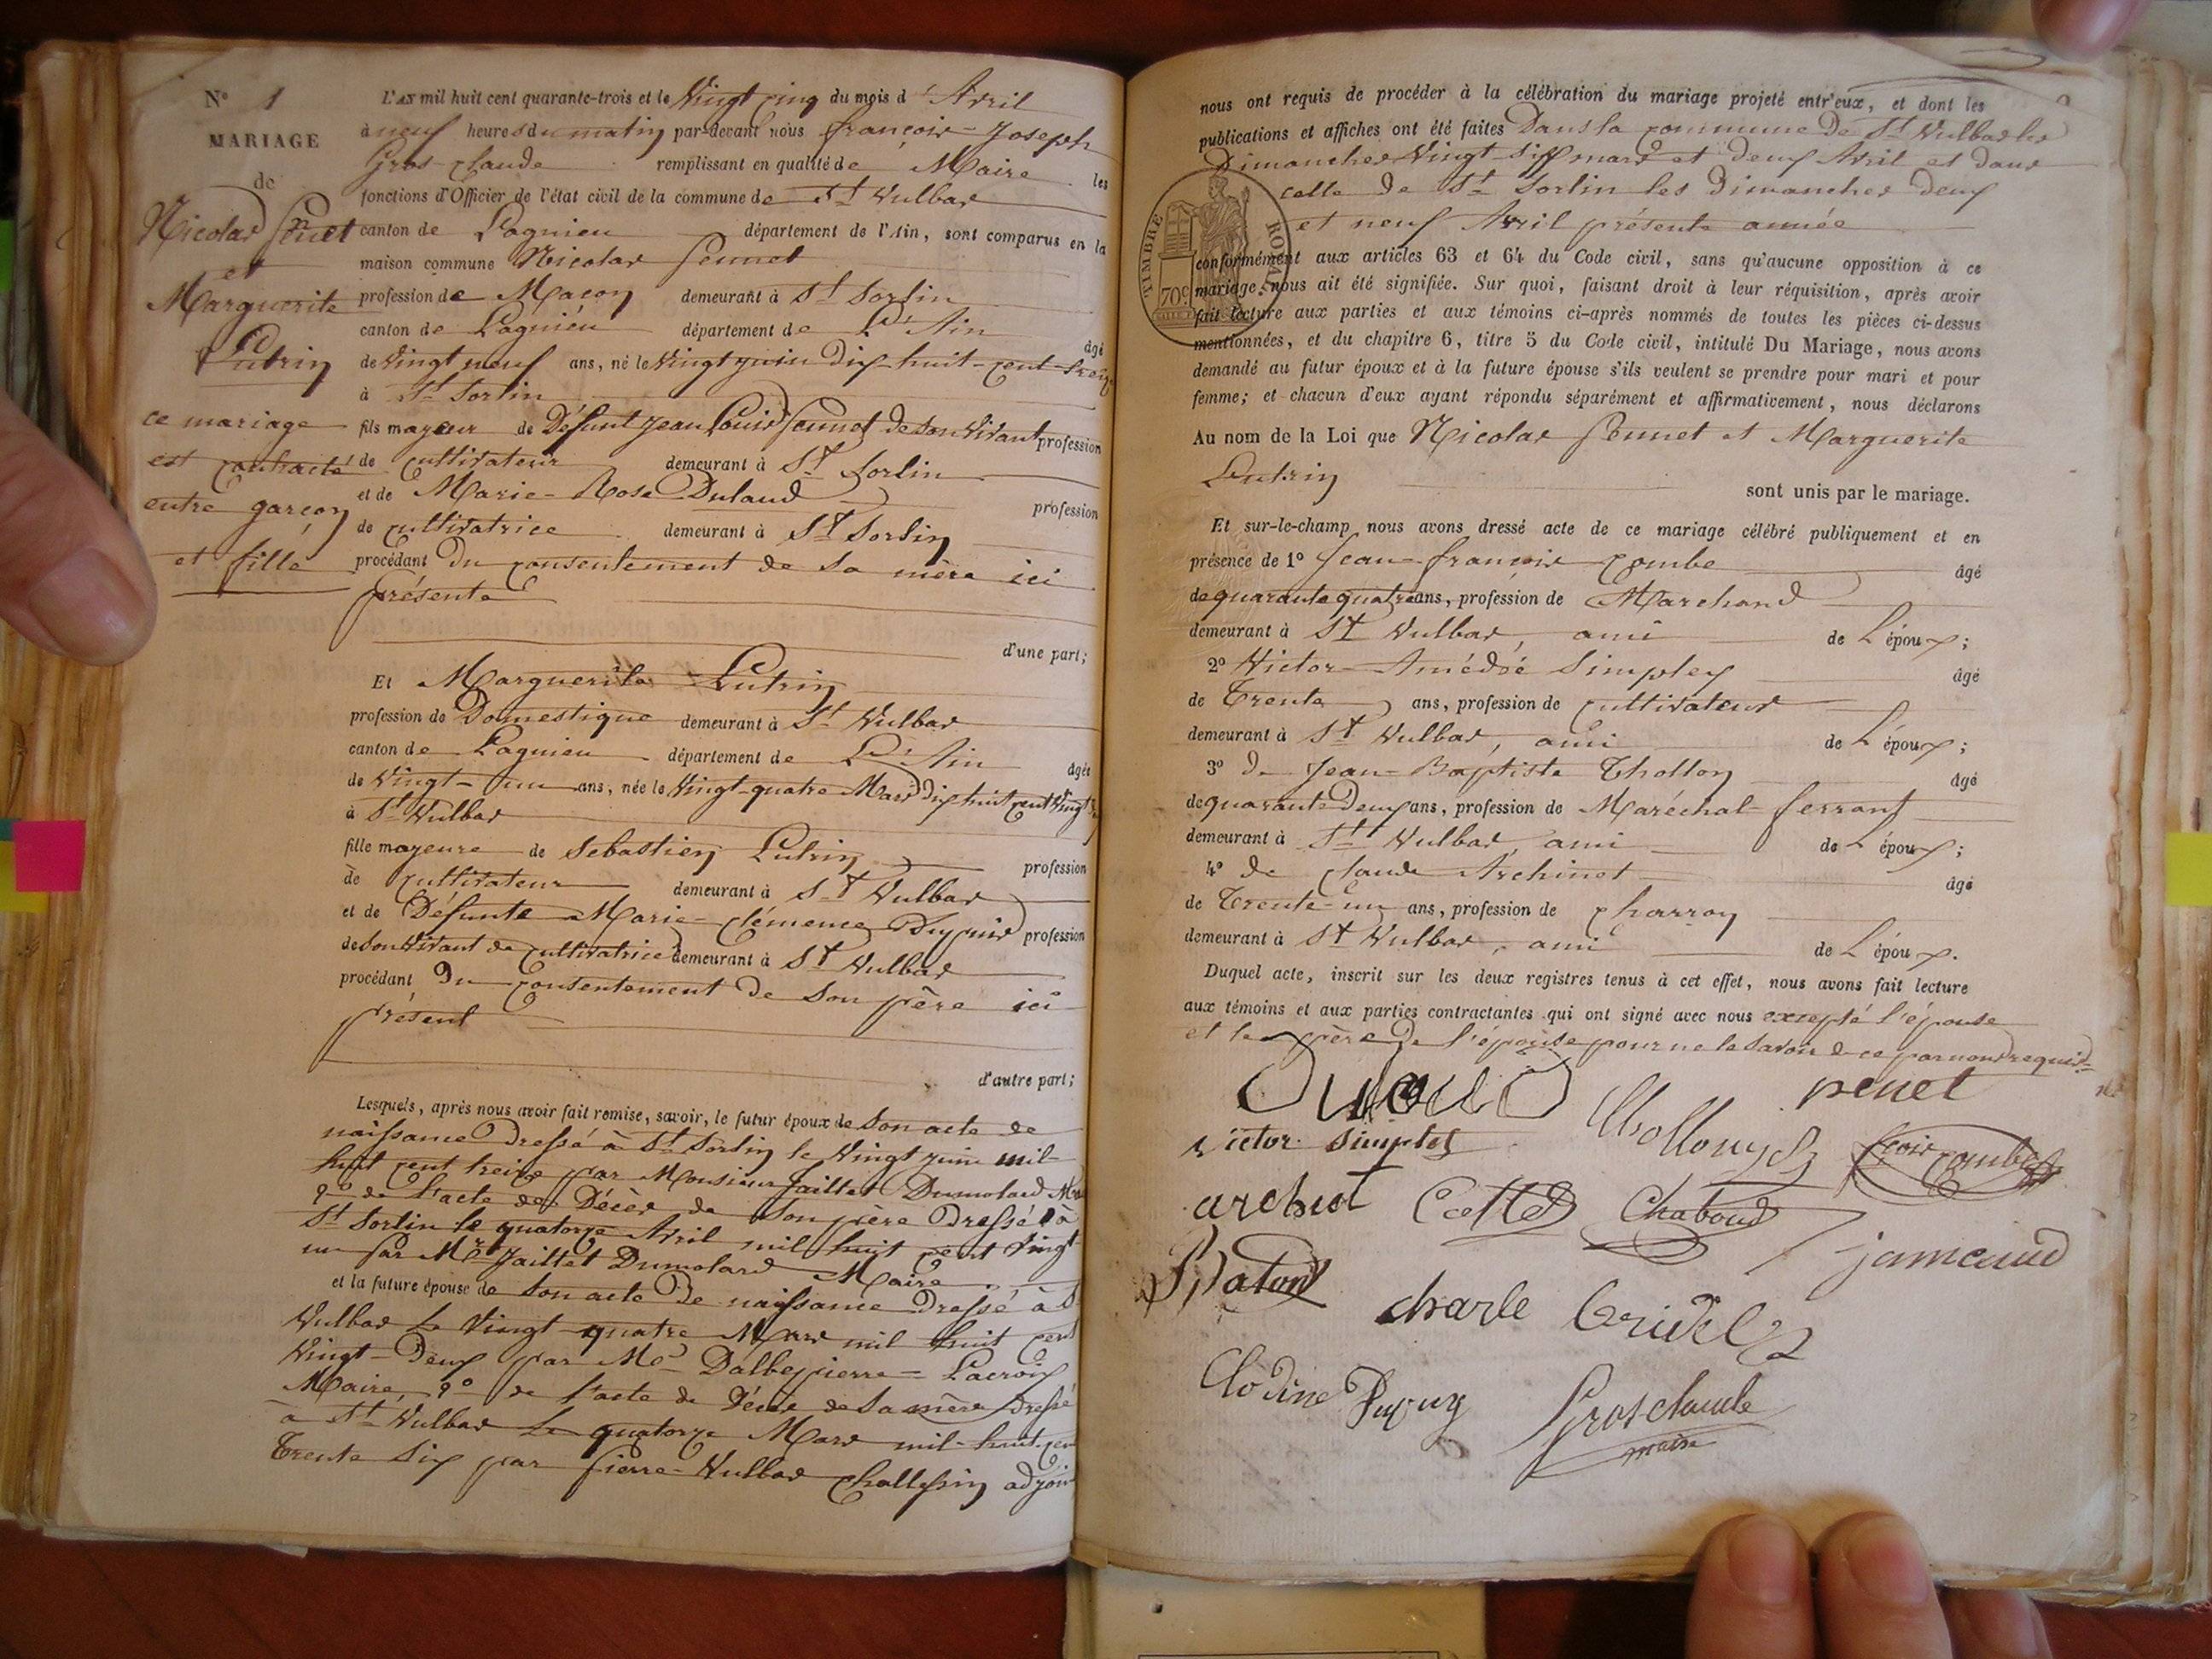 N° 1
MARIAGE
de
Nicolas Penet
et
Marguerite
Lutrin
ce mariage
est contracté
entre garçon
et fille
L'an mil huit cent quarante-trois et le Vingt cinq du mois d'Avril
à neuf heures du matin par-devant nous françois-Joseph
Gros-claude remplissant en qualité de Maire les
fonctions d'Officier de l'état civil de la commune de St Vulbas
canton de Lagnieu département de l'Ain, sont comparus en la
maison commune Nicolas Pennet
profession de Maçon demeurant à St Sorlin
canton de Lagnieu département de L'Ain âgé
de Vingt neuf ans, né le Vingt juin Dix-huit-cent-treize
à St Sorlin
fils majeur de Défunt Jean Louis Pennet de son Vivant profession
de cultivateur demeurant à St Sorlin
et de Marie-Rose Dulaud profession
de cultivatrice demeurant à St Sorlin
procédant Du consentement de Sa mère ici
présente
d'une part;
Et Marguerite Lutrin
profession de Domestique demeurant à St Vulbas
canton de Lagnieu département de L'Ain âgée
de Vingt-un ans, née le Vingt-quatre Mars dix huit cent Vingt
à St Vulbas
fille majeure de Sebastien Lutrin profession
de cultivateur demeurant à St Vulbas
et de Défunte Marie-clémence Dupuis profession
de Son Vivant de cultivatrice demeurant à St Vulbas
procédant Du Consentement De Son père ici
présent
d'autre part;
Lesquels, après nous avoir fait remise, savoir, le futur époux de Son acte de
naissance Dressé à St Sorlin le Vingt juin mil
huit cent treize par Monsieur Jaillet Dumolard
2° de l'acte de Décès de Son père Dressé à
St Sorlin le quatorze Avril mil huit cent Vingt
un par Mr Jaillet Dumolard Maire
et la future épouse de Son acte De naissance Dressé à St
Vulbas le Vingt-quatre Mars mil huit cent
Vingt-Deux par Mr Dalbepierre-Lacroix
Maire, 2° de l'acte de Décès de Sa mère Dressé
à St Vulbas le quatorze Mars mil-huit-cent
Trente Six par Pierre-Vulbas adjoint
nous ont requis de procéder à la célébration du mariage projeté entr'eux, et dont les
publications et affiches ont été faites Dans la commune De St Vulbas les
Dimanches Vingt-six mars et deux Avril et dans
celle De St Sorlin les Dimanches deux
et neuf Avril présente année
TIMBRE ROYAL
70c
conformément aux articles 63 et 64 du Code civil, sans qu'aucune opposition à ce
mariage nous ait été signifiée. Sur quoi, faisant droit à leur réquisition, après avoir
fait lecture aux parties et aux témoins ci-après nommés de toutes les pièces ci-dessus
mentionnées, et du chapitre 6, titre 5 du Code civil, intitulé Du Mariage, nous avons
demandé au futur époux et à la future épouse s'ils veulent se prendre pour mari et pour
femme; et chacun d'eux ayant répondu séparément et affirmativement, nous déclarons
Au nom de la Loi que Nicolas Pennet et Marguerite
Lutrin
sont unis par le mariage.
Et sur-le-champ nous avons dressé acte de ce mariage célébré publiquement et en
présence de 1° Jean-françois combe âgé
de quarante quatre ans, profession de Marchand
demeurant à St Vulbas, ami de L'époux;
2° Victor-Amédée Simplex âgé
de Trente ans, profession de cultivateur
demeurant à St Vulbas, ami de L'époux;
3° de Jean-Baptiste Thollon âgé
de quarante Deux ans, profession de Maréchal-ferrant
demeurant à St Vulbas, ami de L'époux;
4° de claude Archinet âgé
de Trente-un ans, profession de charron
demeurant à St Vulbas, ami de L'époux.
Duquel acte, inscrit sur les deux registres tenus à cet effet, nous avons fait lecture
aux témoins et aux parties contractantes qui ont signé avec nous excepté l'épouse
et le père De l'épouse pour ne le Savoir de ce par nous requis
penet
victor simplex Thollon combe
Chaboud
jameaud
charle
Clodine Dupuy Grosclaude
maire